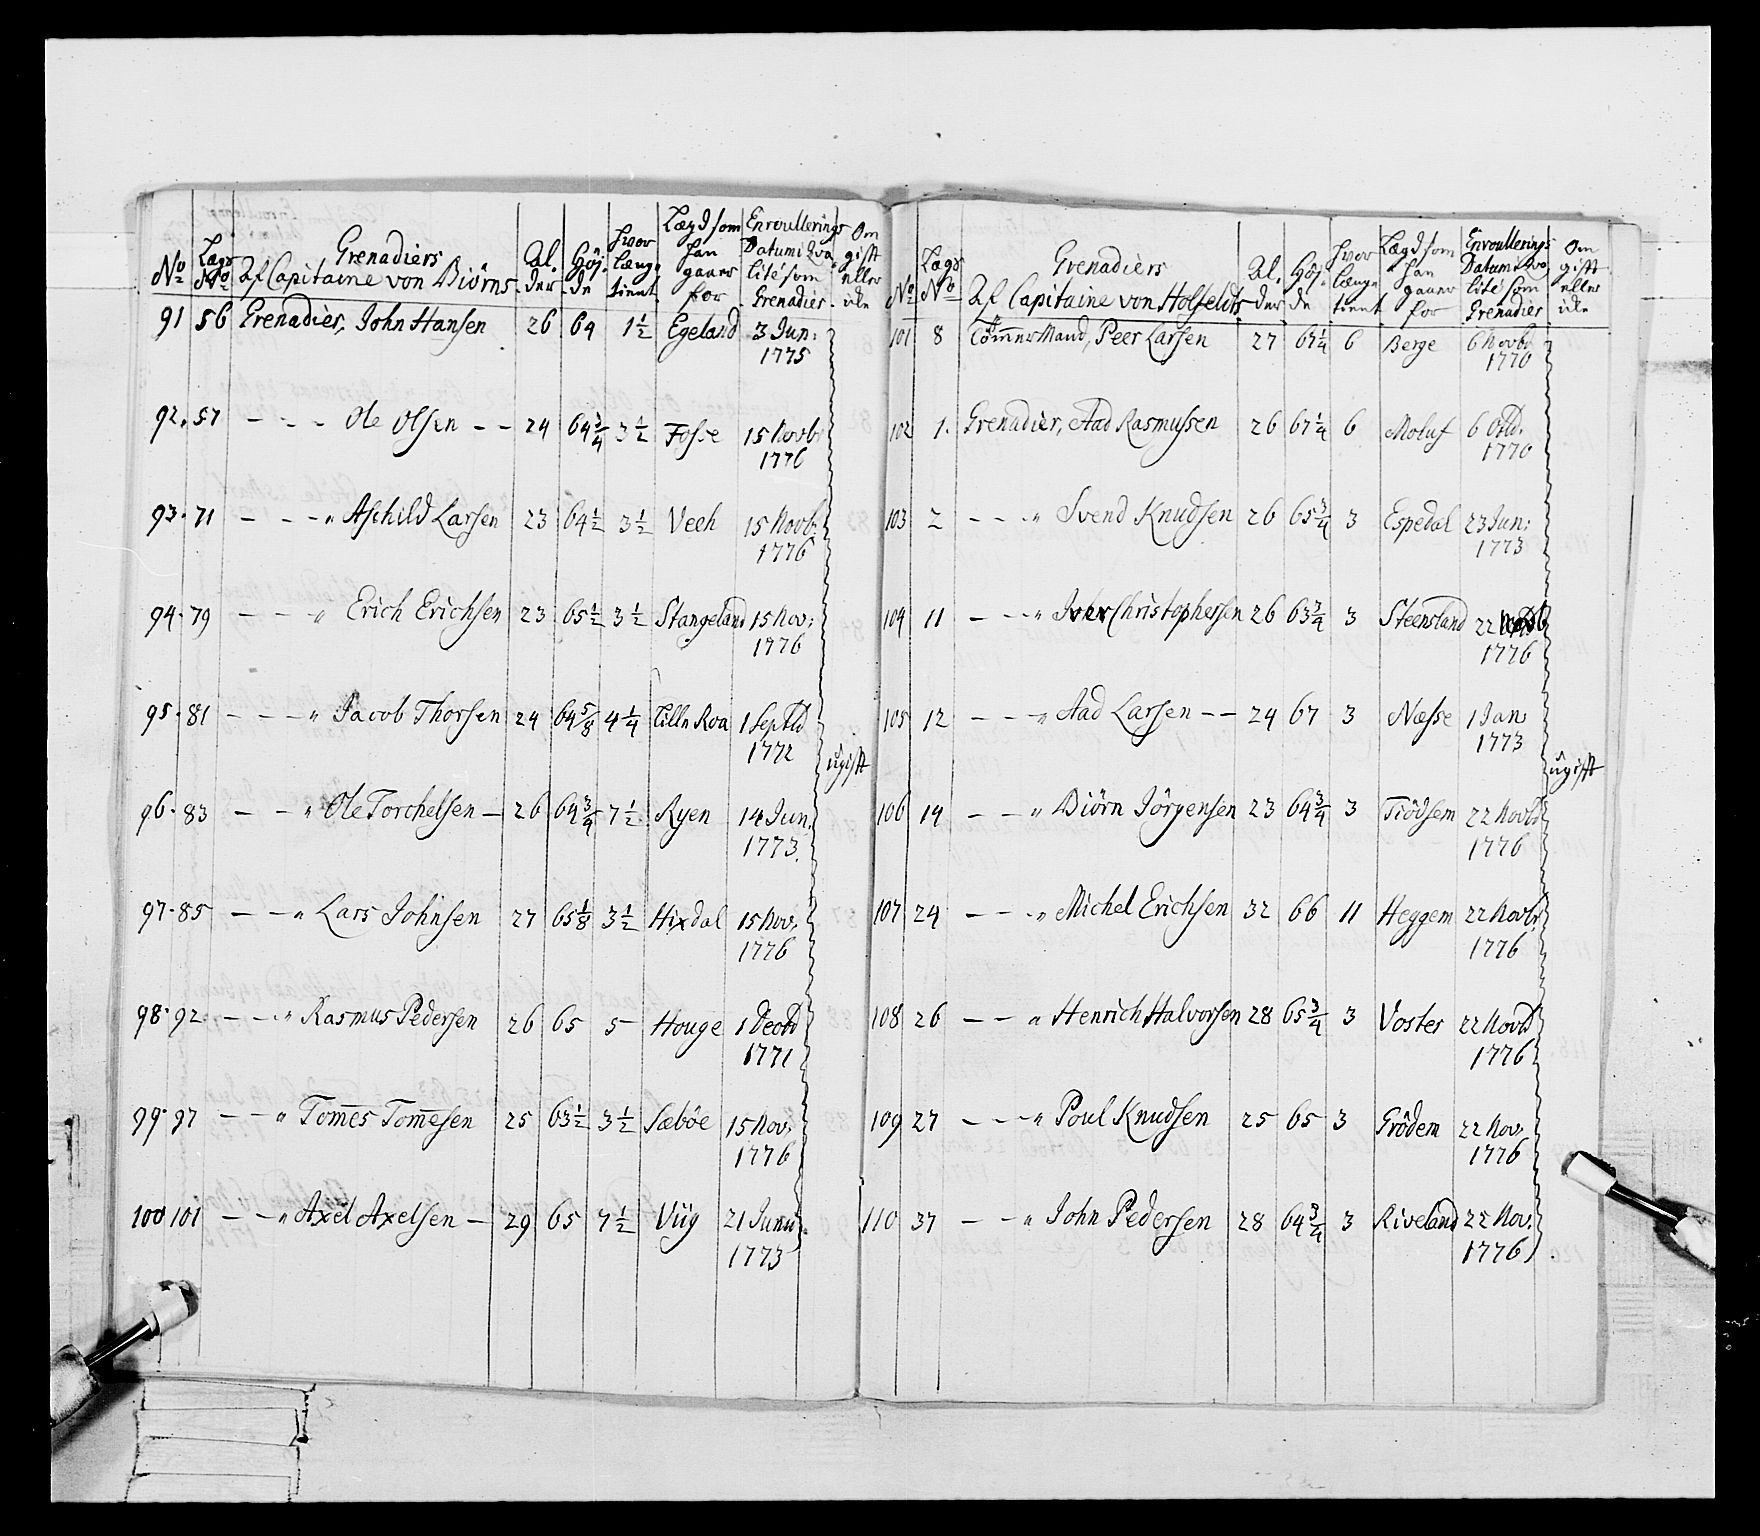 No | Lægs No | Grenadiers Af Capitaine von Biörns | Al.der | Höj.de | hvor længe tient | Lægd som han gaaer for | Enroullerings Datum i Qvalité som Grenadier | Om gifft eller ide
91 | 56 | Grenadier, John Hansen | 26 | 64 | 1½ | Egeland | 3 Jun: 1775
92. | 57 | — - - Ole Olsen - - | 24 | 64¾ | 3½ | Fosse | 15 Novb 1776
93. | 71 | — - - " Aschild Larsen | 23 | 64½ | 3½ | Veeh | 15 Novb: 1776
94. | 79 | — — " Erich Erichsen | 23 | 65½ | 3½ | Stangeland | 15 Nov: 1776
95. | 81 | — — — " Jacob Thorsen | 24 | 64⅝ | 4¼ | Lille Roa | 1 Septbd 1772
ugifft
96. | 83 | — — " Ole Torchelsen — | 26 | 64¾ | 7½ | Ryen | 14 Jun. 1773.
97. | 85 | — — " Lars Johnsen | 27 | 65⅛ | 3½ | Hixdal | 15 Nov. 1776
98. | 92. | — — " Rasmus Pedersen | 26 | 65 | 5 | Houge | 1 Decbd 1771
99. | 97 | — — " Tom̅es Tom̅esen | 25 | 63½ | 3½ | Sæböe | 15 Nov. 1776
100 | 101 | — — " Axel Axelsen — | 29 | 65 | 7½ | Viig | 21 Junii 1773
No | Lægs No | Grenadiers Af Capitaine von Holfeldts | Al.der | Höj.de | hvor længe tient | Lægd som han gaaer for | Enroullerings Datum i Qvalité som Grenadier | Om gifft eller ide
101 | 8 | Töm̅er Mand, Peer Larsen | 27 | 67¼ | 6 | Berge | 6 Novb 1770
102 | 1. | Grenadier, Aad Rasmussen | 26 | 67¼ | 6 | Moluf | 6 1770
103 | 2 | — — " Svend Knudsen | 26 | 65¾ | 3 | Espedal | 23 Jun: 1773
104 | 11 | — — " Iver Christophersen | 26 | 63¾ | 3 | Steensland | 22 Novb 1776
105 | 12 | — — " Aad Larsen — — | 24 | 67 | 3 | Næsse | 1 Jan: 1773
ugifft
106 | 14 | — — " Biörn Jörgensen | 23 | 64¾ | 3 | Tiödsem | 22 Novbd 1776
107 | 24 | — — " Michel Erichsen | 32 | 66 | 11 | Heggem | 22 Novbr 1776
108 | 26 | — — " Henrich Halvorsen | 28 | 65¾ | 3 | Voster | 22 Novbd 1776
109 | 27 | — — " Poul Knudsen | 25 | 65 | 3 | Grödem | 22 Nov. 1776
110 | 37 | — — " John Pedersen | 28 | 64¾ | 3 | Riveland | 22 Nov. 1776